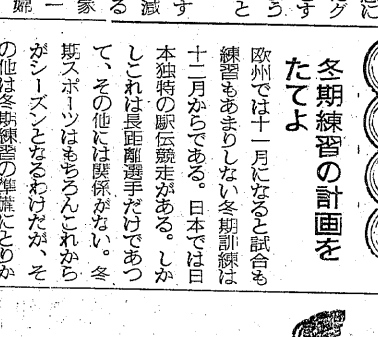 冬期練習の計画を
たてよ
欧州では十一月になると試合も
練習もあまりしない冬期訓練は
十二月からである。日本では日
本独特の駅伝競走がある。しか
しこれは長距離選手だけであつ
て、その他には関係がない。冬
期スポーツはもちろんこれから
がシーズンとなるわけだが、そ
の他は冬期練習の準備にとりか